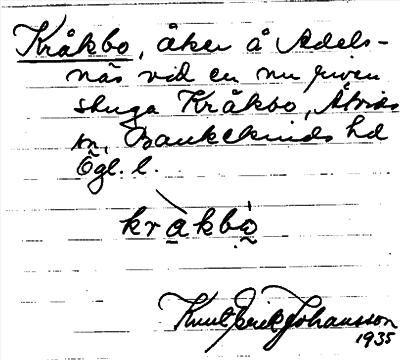 Kråkbo, åker å Adels-
näs vid en nu riven
stuga Kråkbo, Åtvids
sn, Bankekinds hd
Ögl. l.
kråkbo
Knut Erik Johansson
1935